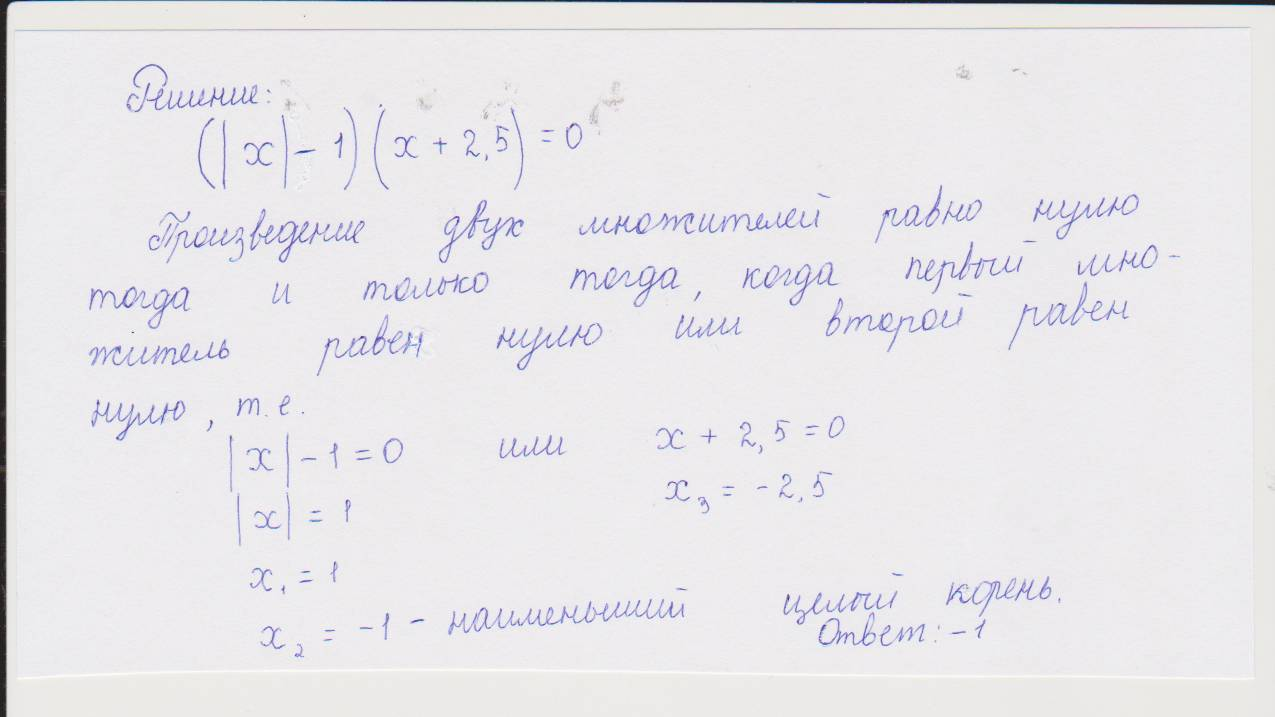 Решение:
(|x| - 1)(x + 2,5) = 0
Произведение двух множителей равно нулю
тогда и только тогда, когда первый мно-
житель равен нулю или второй равен
нулю, т.е.
|x| - 1 = 0 или x + 2,5 = 0
|x| = 1 x₃ = - 2,5
x₁ = 1
x₂ = -1 - наименьший целый корень.
Ответ: -1